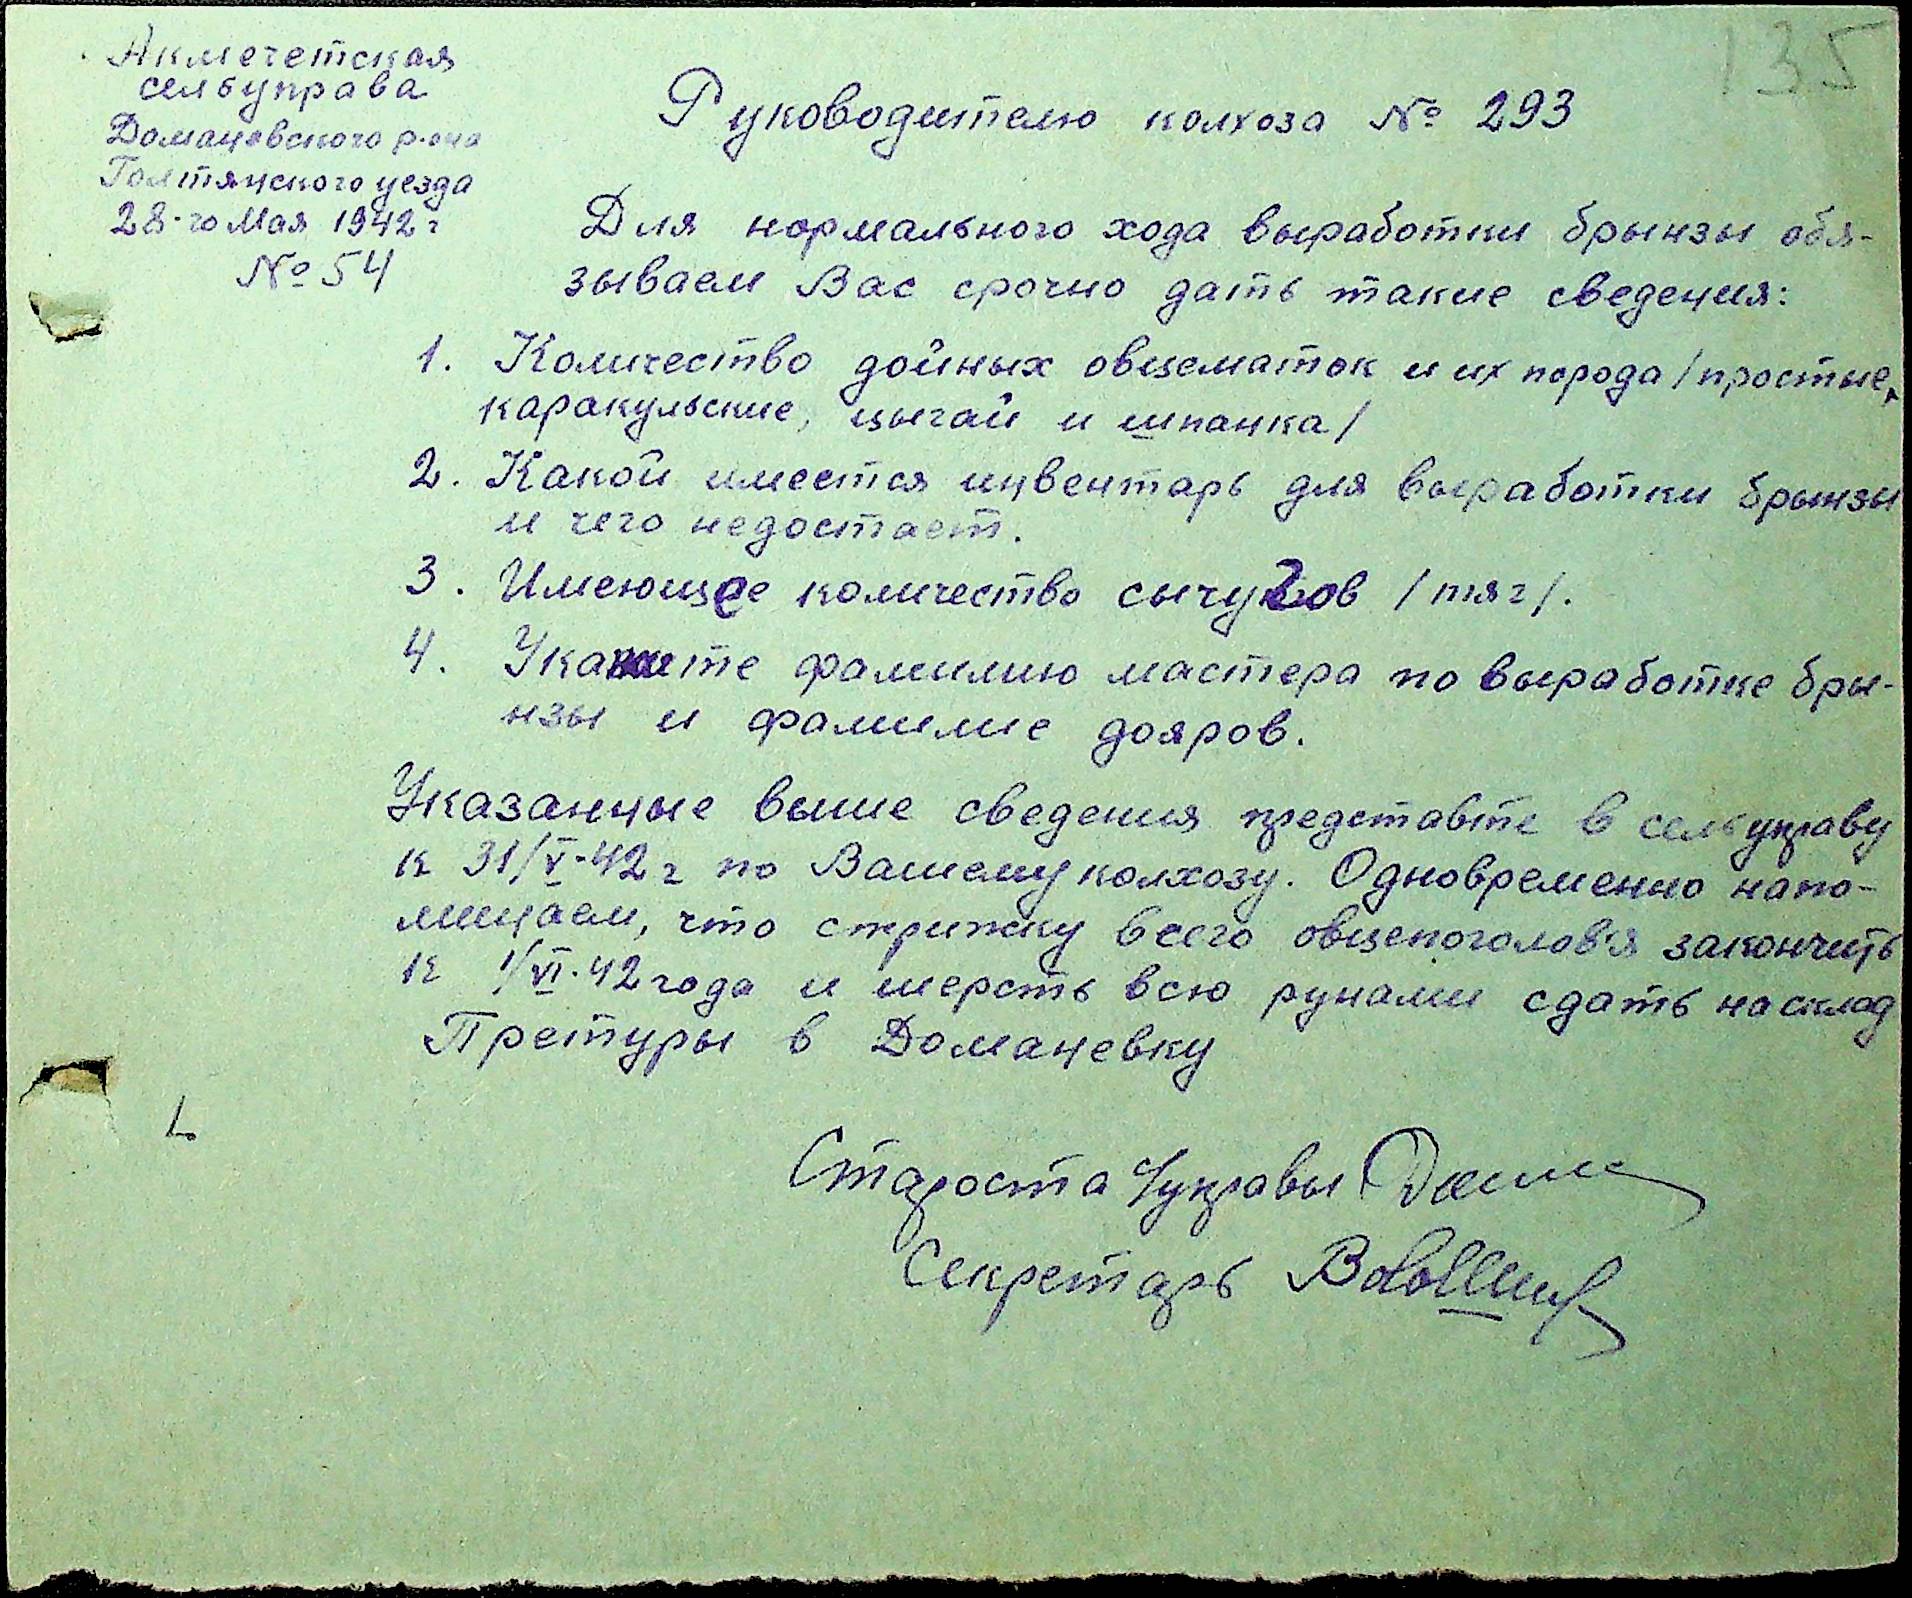 135
Акмечетская
сельуправа
Домановского р-она
Голтянского уезда
28-го Мая 1942 г
№ 54
Руководителю колхоза № 293
Для нормального хода выработки брынзы обя-
зываем Вас срочно дать такие сведения:
1. Количество дойных овцематок и их порода /простые,
каракульские, цыгай и шпанка/
2. Какой имеется инвентарь для выработки брынзы
и чего недостает.
3. Имеющее количество сычугов /тяг/.
4. Укажите фамилию мастера по выработке бры-
нзы и фамилие дояров.
Указанные выше сведения представте в сельуправу
к 31/V-42 г по Вашему колхозу. Одновременно напо-
минаем, что стрижку всего овцепоголовя закончить
к 1/VI-42 года и шерсть всю рунами сдать на склад
Претуры в Доманевку
Староста Управы
Секретарь